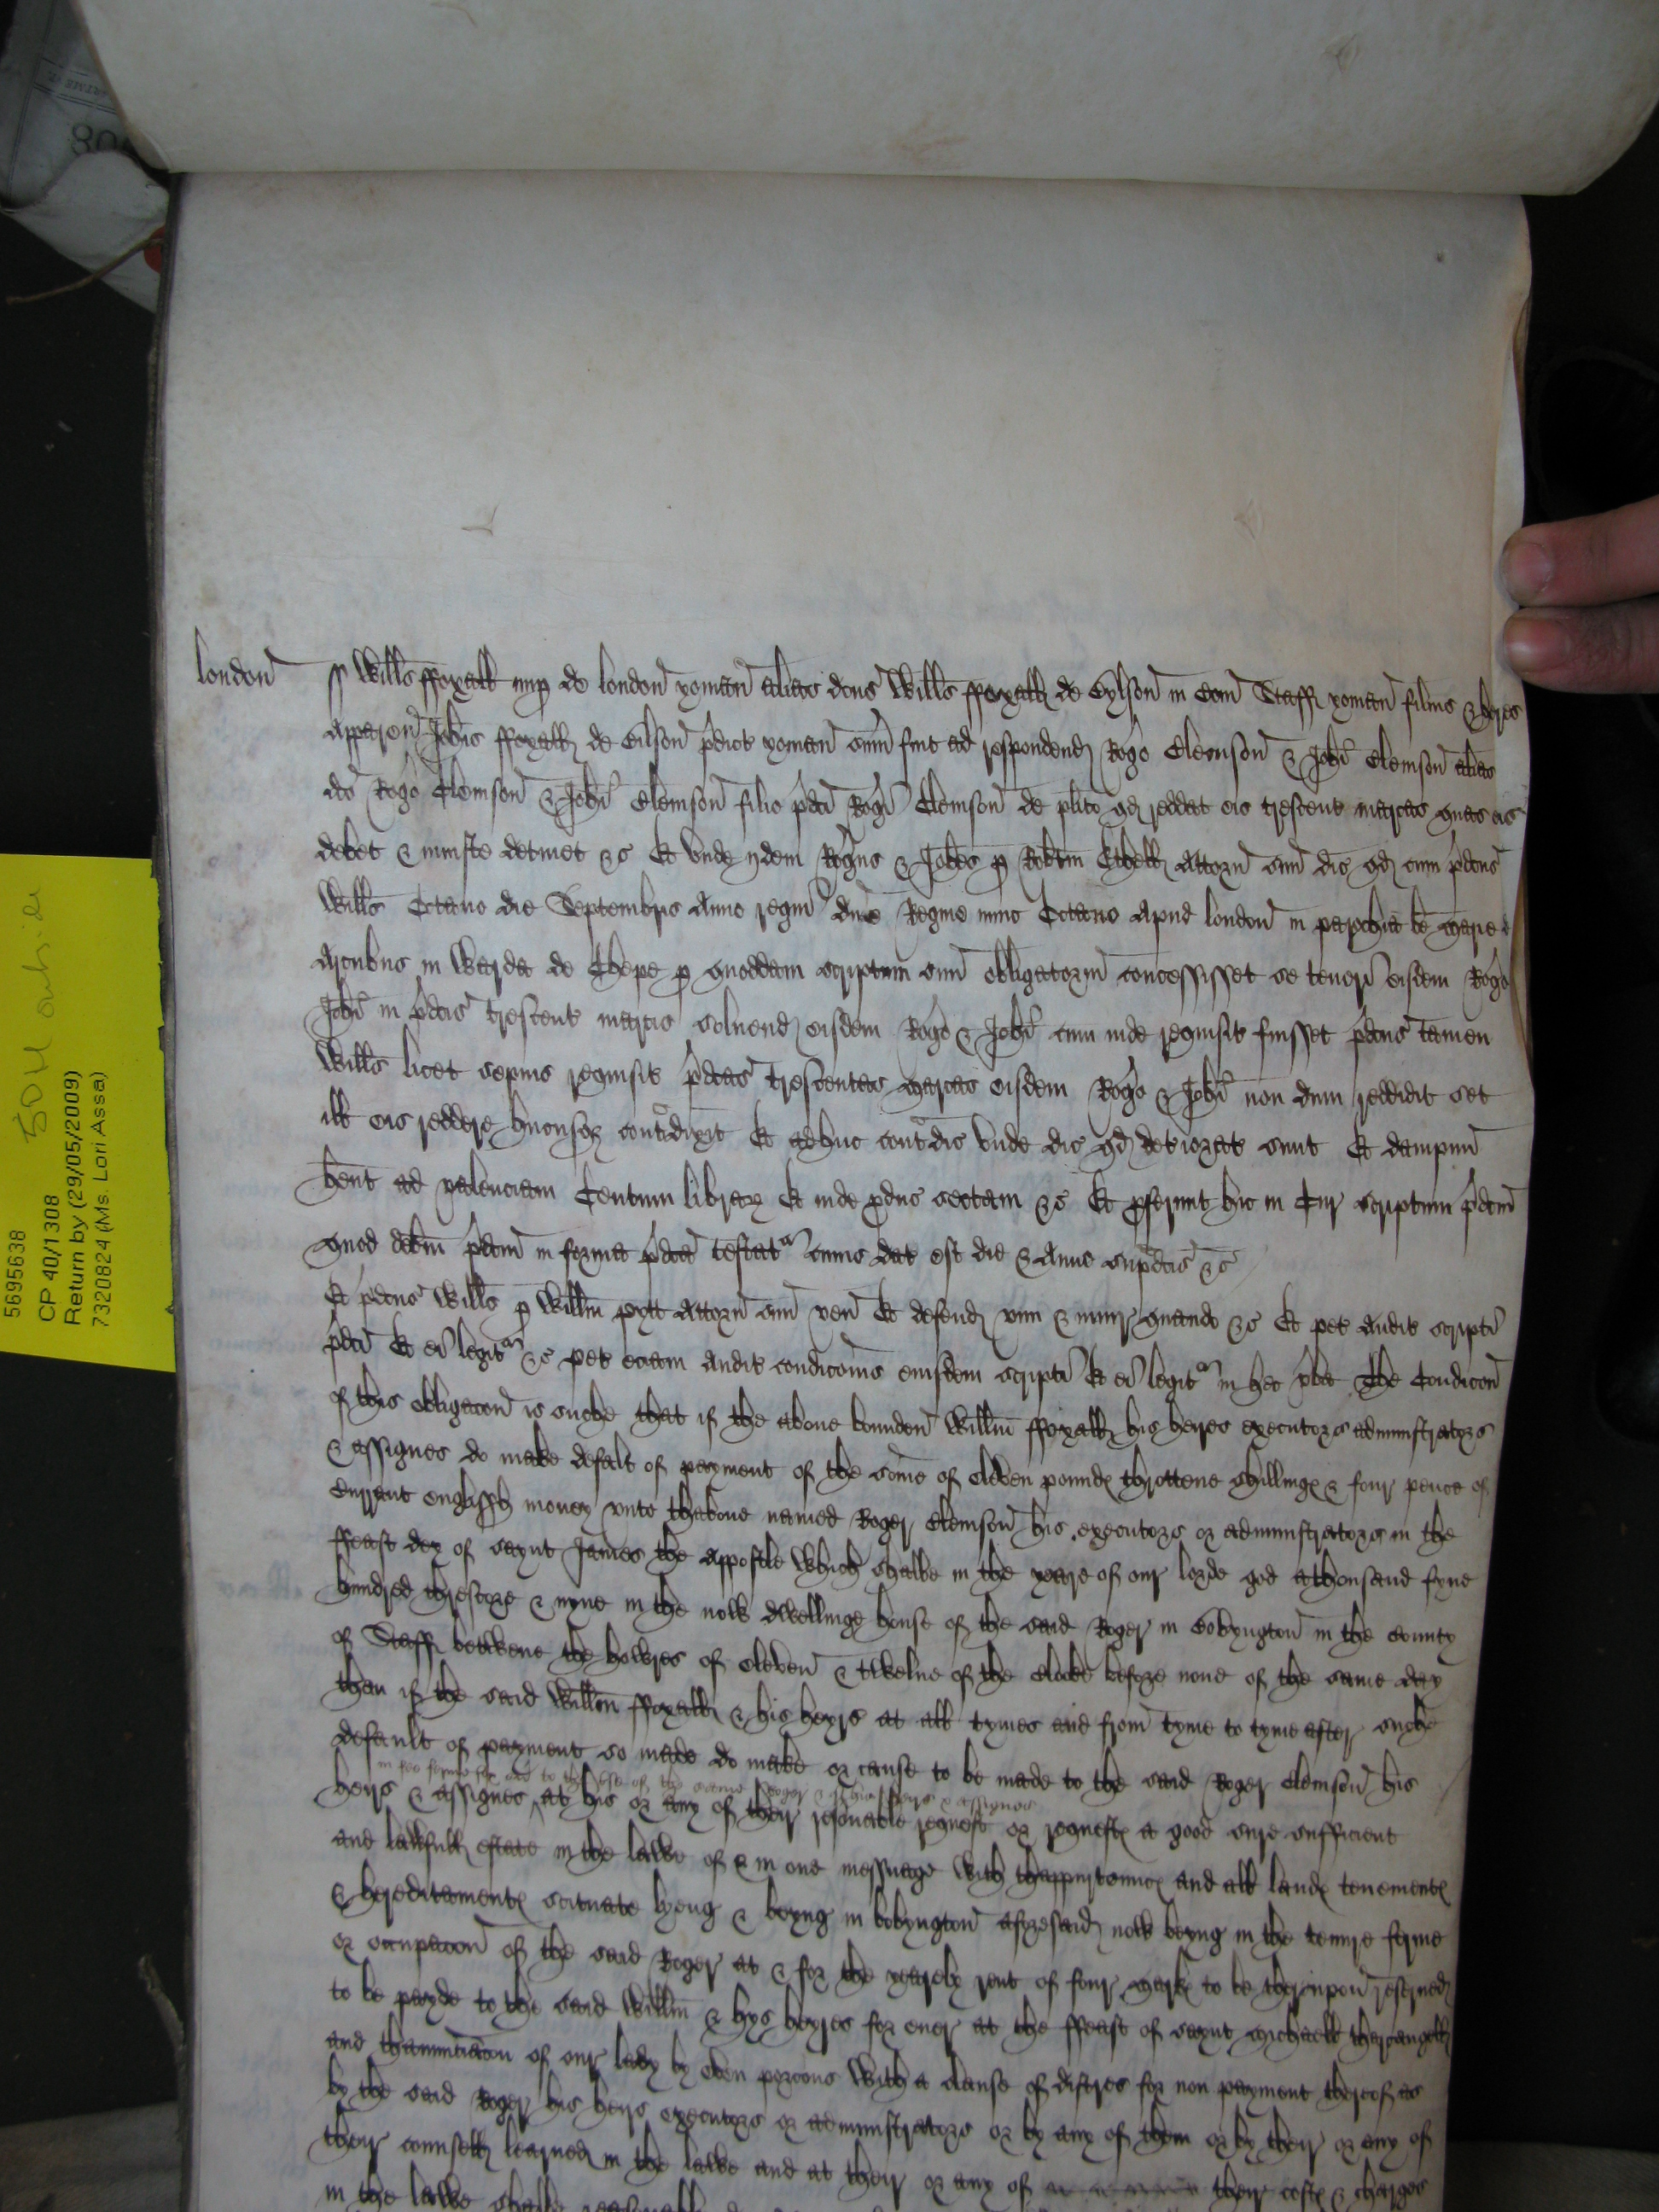 london ss Wills ffoxall nup de london yoman alias dcus Wills ffoxall de Cylson in Com Staff yoman filius & heres
apparen Johis ffoxall de Cilson pdict yoman sum fuit ad respondend Rogo Clemson & Johi Clemson alias
dco Rogo Clemson & Johi Clemson filio pdci Rogi Clemson de plito qd reddat eis trescent marcas quas eis
debet & iniuste detinet &c Et unde ijdem Rogus & Johes p Robtm attorn suum dic qd cum pdcus
Wills Octavo die Septembris Anno regni dne Regine nunc Octavo Apud london in parochia be Marie d
Arcubus in Warda de Chepe p quoddam scriptum suum obligatorium concessisset se teneri eisdem Rogo
Johi in pdcis trescent marcis solvend eisdem Rogo & Johi cum inde requisit fuisset pdcus tamen
Wills licet sepius requisit pdcas trescentas marcas eisdem Rogo & Johi non dum reddidit set
ill eis reddere hucusq contradixit Et adhuc contradic unde dic qd deteriorat sunt Et dampnum
hent ad valenciam Centum librar Et inde pduc sectam &c Et pferunt hic in Cur scriptum pdcm
quod debm pdcm in forma pdca testat cuius dat est die & Anno supdcis &c
Et pdcus Wills p Willm pytt attorn suum ven Et defend vim & iniur quando &c Et pet audit scripti
pdci Et ei legit &c pet eciam audit condicionis eiusdem scripti Et ei legit in hec vba The Condicon
of this obligacon is suche that if the above bounden Willm ffoxall his heyres executors administrators
& assignes do make defalt of payment of the some of eleven pounds throttene shillings & four pence of
Current englyssh money unto thabove named Roger Clemson his executors or administrators in the
ffeast day of saynt James the Appostle which shalbe in the yeare of our lorde god a thousand fyve
hundred threscore & nyne in the now dwellinge house of the said Roger in Bobyngton in the county
of Staff betwene the howres of eleven & twelve of the clocke before none of the same day
then if the said Willm ffoxall & his heyrs at all tymes and from tyme to tyme after suche
default of payment so made do make or cause to be made to the said Roger Clemson his
in fee ferme for and to the use of the same Roger & of his heirs & assignes
heirs & assignes at his or any of their resonable request or requests a good sure sufficient
and lawfull estate in the lawe of & in one messuage with thappurtennces and all lands tenements
& hereditaments scituate lyeng & beyng in bobyngton aforesaid now beyng in the tenure ferme
or occupacon of the said Roger at & for the yearely rent of four marks to be therupon reserved
to be payde to the said Willm & hys heyres for ever at the ffeast of saynt Michaell tharcangell
and thannuciacon of our lady by even porcons with a clause of distres for non payment therof as
by the said Roger his heirs executors or administrators or by any of them or by their or any of
their counsell learned in the lawe and at their or any of their costs & charges
in the lawe shalbe
5695638
CP 40/1308
Return by (29/05/2009)
7320824 (Ms. Lori Assa)